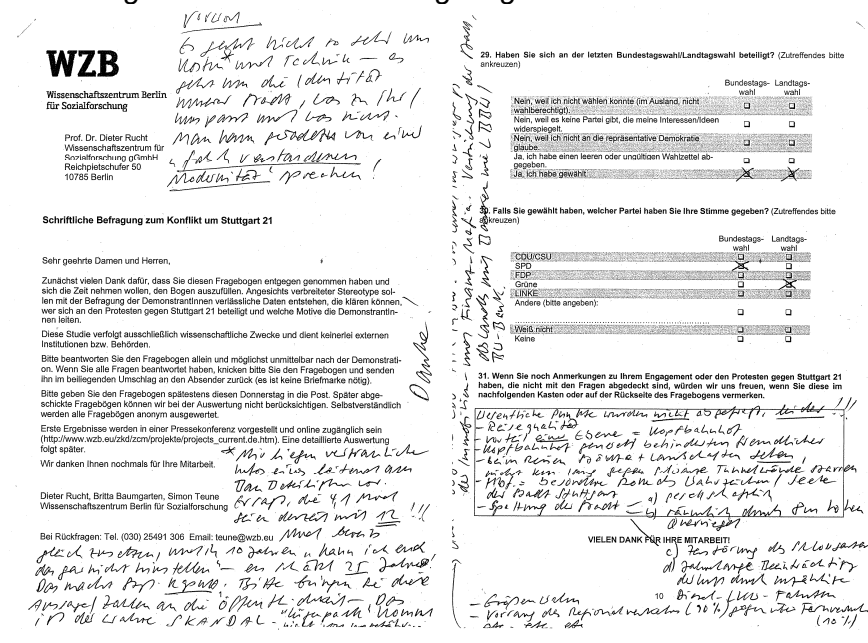 Vorwort
Es geht nicht so sehr um
Kosten und Technik – es
geht um die Identität
unserer Stadt, was zu ihr
passt und was nicht.
Man kann geradezu von einer
"falsch verstandenen
Modernität" sprechen!
WZB
Wissenschaftszentrum Berlin
für Sozialforschung
Prof. Dr. Dieter Rucht
Wissenschaftszentrum für
Sozialforschung gGmbH
Reichpietschufer 50
10785 Berlin
Schriftliche Befragung zum Konflikt um Stuttgart 21
Sehr geehrte Damen und Herren,
Zunächst vielen Dank dafür, dass Sie diesen Fragebogen entgegen genommen haben und
sich die Zeit nehmen wollen, den Bogen auszufüllen. Angesichts verbreiteter Stereotype sol-
len mit der Befragung der DemonstrantInnen verlässliche Daten entstehen, die klären können,
wer sich an den Protesten gegen Stuttgart 21 beteiligt und welche Motive die DemonstrantIn-
nen leiten.
Diese Studie verfolgt ausschließlich wissenschaftliche Zwecke und dient keinerlei externen
Institutionen bzw. Behörden.
Bitte beantworten Sie den Fragebogen allein und möglichst unmittelbar nach der Demonstrati-
on. Wenn Sie alle Fragen beantwortet haben, knicken bitte Sie den Fragebogen und senden
ihn im beiliegenden Umschlag an den Absender zurück (es ist keine Briefmarke nötig).
Bitte geben Sie den Fragebogen spätestens diesen Donnerstag in die Post. Später abge-
schickte Fragebögen können wir bei der Auswertung nicht berücksichtigen. Selbstverständlich
werden alle Fragebögen anonym ausgewertet.
Danke!
Erste Ergebnisse werden in einer Pressekonferenz vorgestellt und online zugänglich sein
(http://www.wzb.eu/zkd/zcm/projekte/projects_current.de.htm). Eine detaillierte Auswertung
folgt später.
Wir danken Ihnen nochmals für Ihre Mitarbeit.
* Mir liegen vertrauliche
Infos eines leitenden
vor.
4,1 Mrd
seien derzeit mit 12 !!!
Dieter Rucht, Britta Baumgarten, Simon Teune
Wissenschaftszentrum Berlin für Sozialforschung
Bei Rückfragen: Tel. (030) 25491 306 Email: teune@wzb.eu
Mrd bereits
gleich zusetzen, und "in 10 Jahren kann ich
das gar nicht hinstellen" – er schätzt 25 Jahre!
Das macht Bitte bringen Sie diese
Aussage / Zahlen an die Öffentlichkeit. Das
ist der wahre SKANDAL –
"Lügenpack,
der Immobilien- und Finanz-Mafia. Vernichtung der Stadt,
des Lands und Banken wie LBBW /
BW-Bank.
29. Haben Sie sich an der letzten Bundestagswahl/Landtagswahl beteiligt? (Zutreffendes bitte
ankreuzen)
Bundestags-
wahl
Landtags-
wahl
Nein, weil ich nicht wählen konnte (im Ausland, nicht
wahlberechtigt).
Nein, weil es keine Partei gibt, die meine Interessen/Ideen
widerspiegelt.
Nein, weil ich nicht an die repräsentative Demokratie
glaube.
Ja, ich habe einen leeren oder ungültigen Wahlzettel ab-
gegeben.
Ja, ich habe gewählt
30. Falls Sie gewählt haben, welcher Partei haben Sie Ihre Stimme gegeben? (Zutreffendes bitte
ankreuzen)
Bundestags-
wahl
Landtags-
wahl
CDU/CSU
SPD
FDP
Grüne
LINKE
Andere (bitte angeben):
Weiß nicht
Keine
31. Wenn Sie noch Anmerkungen zu Ihrem Engagement oder den Protesten gegen Stuttgart 21
haben, die nicht mit den Fragen abgedeckt sind, würden wir uns freuen, wenn Sie diese im
nachfolgenden Kasten oder auf der Rückseite des Fragebogens vermerken.
Wesentliche Punkte wurden nicht abgefragt, leider!!!
- Reisequalität
- Vorteil eine Ebene = Kopfbahnhof
- Kopfbahnhof generell behindertenfreundlicher
- beim Reisen Städte + Landschaften sehen,
nicht km lang gegen schwarze Tunnelwände starren
- Hbf. = besondere Rolle als Wahrzeichen / Seele
der Stadt Stuttgart
- Spaltung der Stadt
a) gesellschaftlich
b) räumlich durch 8m hohen
VIELEN DANK FÜR IHRE MITARBEIT!
c) Zerstörung des Schlossgartens
d) jahrelange Beeinträchtig
der Luft durch unzählige
10
Diesel-LKW-Fahrten
- Größenwahn
- Vorrang des Regionalverkehrs (90%) gegenüber Fernverkehr
(10%)
etc. etc. etc